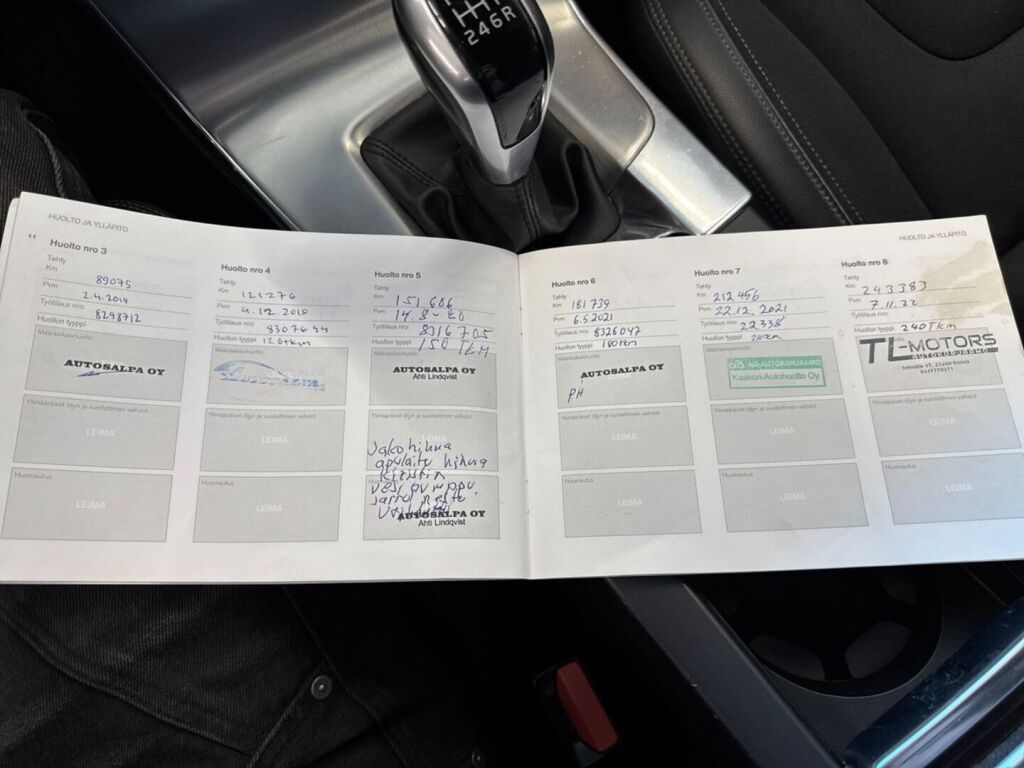 2 4 6 R
HUOLTO JA YLLÄPITO
Huolto nro 3
Tehty
Km 89075
Pvm 2.4.2019
Työtilaus nro: 8298712
Huollon tyyppi
Määräaikaishuolto
AUTOSALPA OY
Ylimääräiset öljyn ja suodattimen vaihdot
LEIMA
Huomautus
LEIMA
Huolto nro 4
Tehty
Km 121276
Pvm 4.12.2019
Työtilaus nro: 8307644
Huollon tyyppi 120tkm
Ylimääräiset öljyn ja suodattimen vaihdot
LEIMA
Huomautus
LEIMA
Huolto nro 5
Tehty
Km 151 606
Pvm 14.8-20
Työtilaus nro: 8316705
Huollon tyyppi 150 TKM
Määräaikaishuolto
AUTOSALPA OY
Ahti Lindqvist
Ylimääräiset öljyn ja suodattimen vaihdot
LEIMA
Jakohihna
apulaite hihna
kiristin
vesipumppu.
jarruneste
AUTOSALPA OY
Ahti Lindqvist
HUOLTO JA YLLÄPITO
Huolto nro 6
Tehty
Km 181739
Pvm 6.5.2021
Työtilaus nro: 8326047
Huollon tyyppi 180tkm
Määräaikaishuolto
AUTOSALPA OY
PH
Ylimääräiset öljyn ja suodattimen vaihdot
LEIMA
Huomautus
LEIMA
Huolto nro 7
Tehty
Km 212 456
Pvm 22.12.2021
Työtilaus nro: 22338
Huollon tyyppi
Määräaikaishuolto
AD-AUTOKORJAAMO
Kaakon Autohuolto Oy
Ylimääräiset öljyn ja suodattimen vaihdot
LEIMA
Huomautus
LEIMA
Huolto nro 8
Tehty
Km 243383
Pvm 7.11.22
Työtilaus nro:
Huollon tyyppi 240TKm
TL-MOTORS
AUTOKORJAAMO
Ylimääräiset öljyn ja suodattimen vaihdot
LEIMA
Huomautus
LEIMA